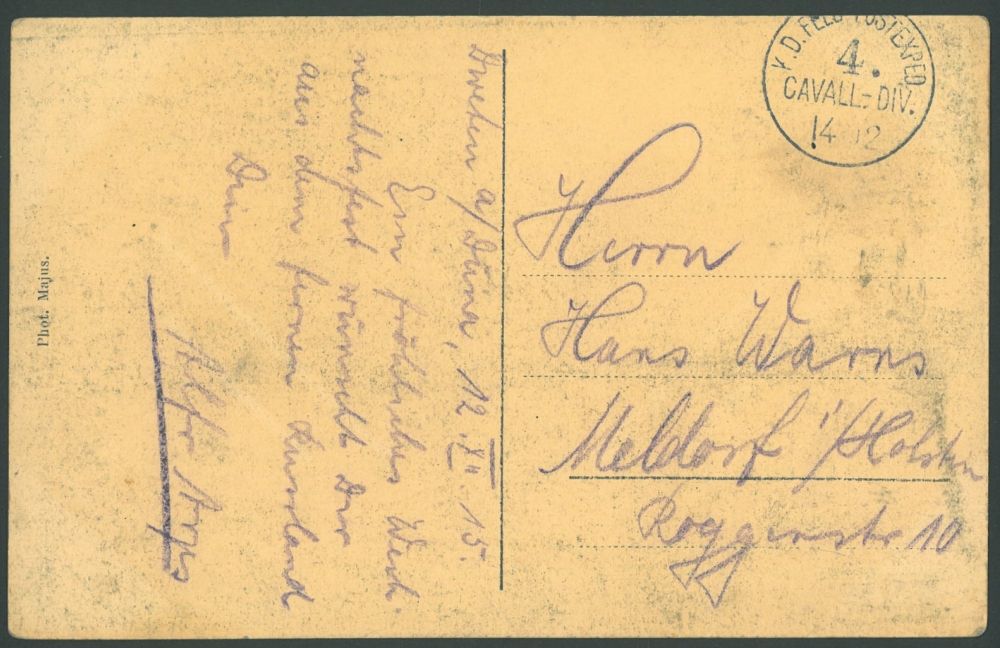 K.D. FELD-POSTEXPED
4.
CAVALL.-DIV.
14 12
Herrn
Hans Warns
Meldorf i/Holstein
Roggenstr 10
a/Düna, 12. XII. 15.
Ein fröhliches Weih-
nachtsfest wünscht Dir
aus dem fernen Kurland
Dein
Alfr.
Phot. Majus.